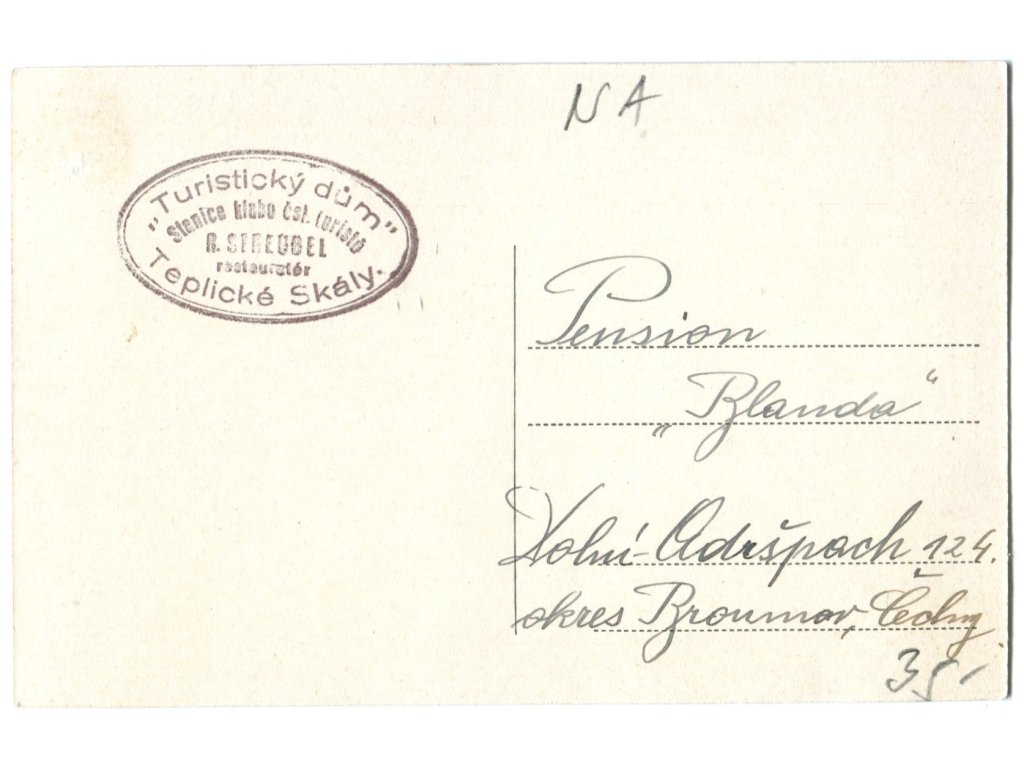 NA
"Turistický dům"
Stanice klubu čsl. turistů
R. STREUBEL
restauratér
Teplické Skály.
Pension
„Blanda“
Dolní-Adršpach 124.
okres Broumov, Čechy
35,-